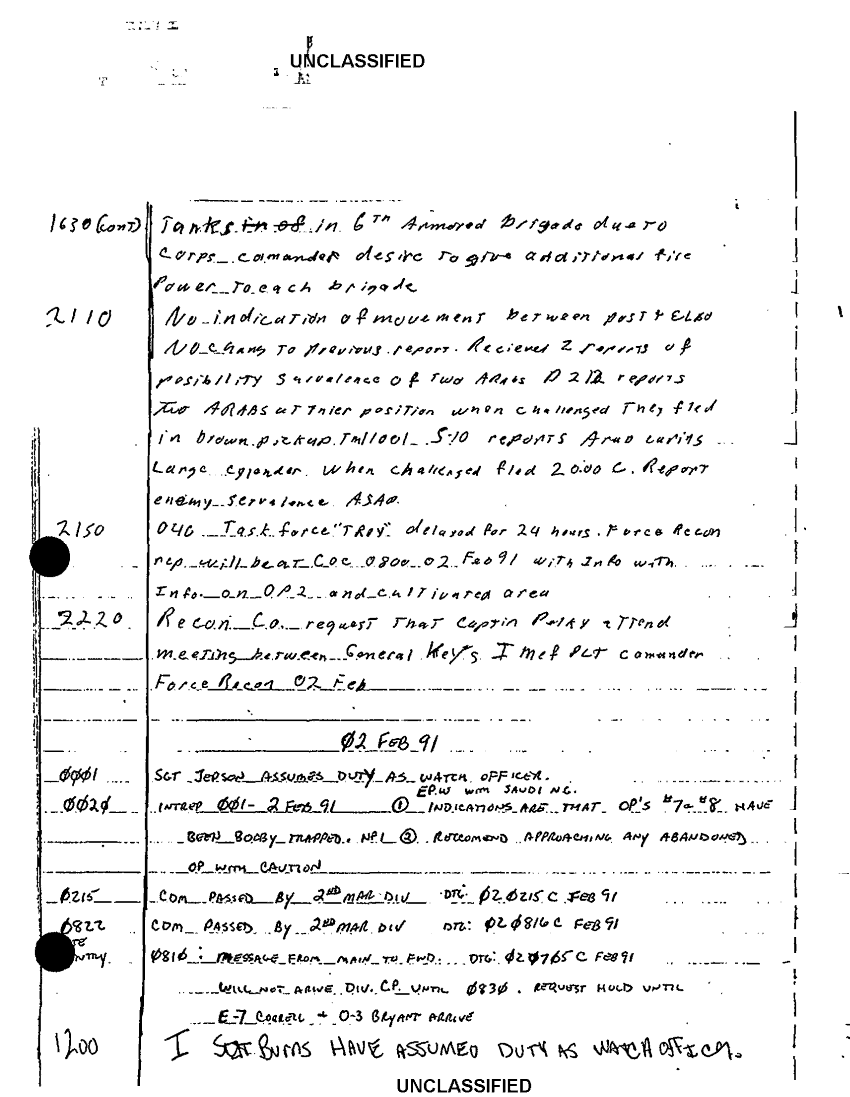 UNCLASSIFIED
1630 (cont) Tanks in of in 6TH Armored brigade due to
Corps comander desire to give additional fire
Power to each brigade
2110 No indication of movement between post &
No chang to previous report. Recieved 2 reports of
posibility Survalence of Two ARabs D212 reports
Two ARABS at Thier position when challenged They fled
in brown pickup. 5-10 reports Arab
Large When challenged fled 2000 C. Report
enemy Servalence ASAP.
2150 Task force "TROY" delayed for 24 hours. Force Recon
rep will be at COC 0800 02 Feb 91 with Info with
Info. on OP2 and cultivated area
2220 Recon Co. request That Captin attend
meeting between General Key's I Mef PLT comander
Force Recon 02 Feb
02 FEB 91
0001 SGT JEPSON ASSUMES DUTY AS WATCH OFFICER.
EPW with SAUDI N.G.
0020 INTREP 001- 2 FEB 91 ① INDICATIONS ARE THAT OP'S #7 & #8 HAVE
BEEN BOOBY TRAPPED. NPI ② RECCOMEND APPROACHING ANY ABANDONED
OP WITH CAUTION
0215 COM PASSED BY 2ND MAR DIV DTG: 020215 C FEB 91
0822 COM PASSED BY 2ND MAR DIV DTG: 020816 C FEB 91
ENTRY 0810: MESSAGE FROM MAIN TO FWD. DTG: 020765 C FEB 91
WILL NOT ARIVE DIV. CP UNTIL 0830. REQUEST HOLD UNTIL
E-7 CORRELL + O-3 BRYANT ARRIVE
1200 I SGT BURNS HAVE ASSUMED DUTY AS WATCH OFFICER.
UNCLASSIFIED